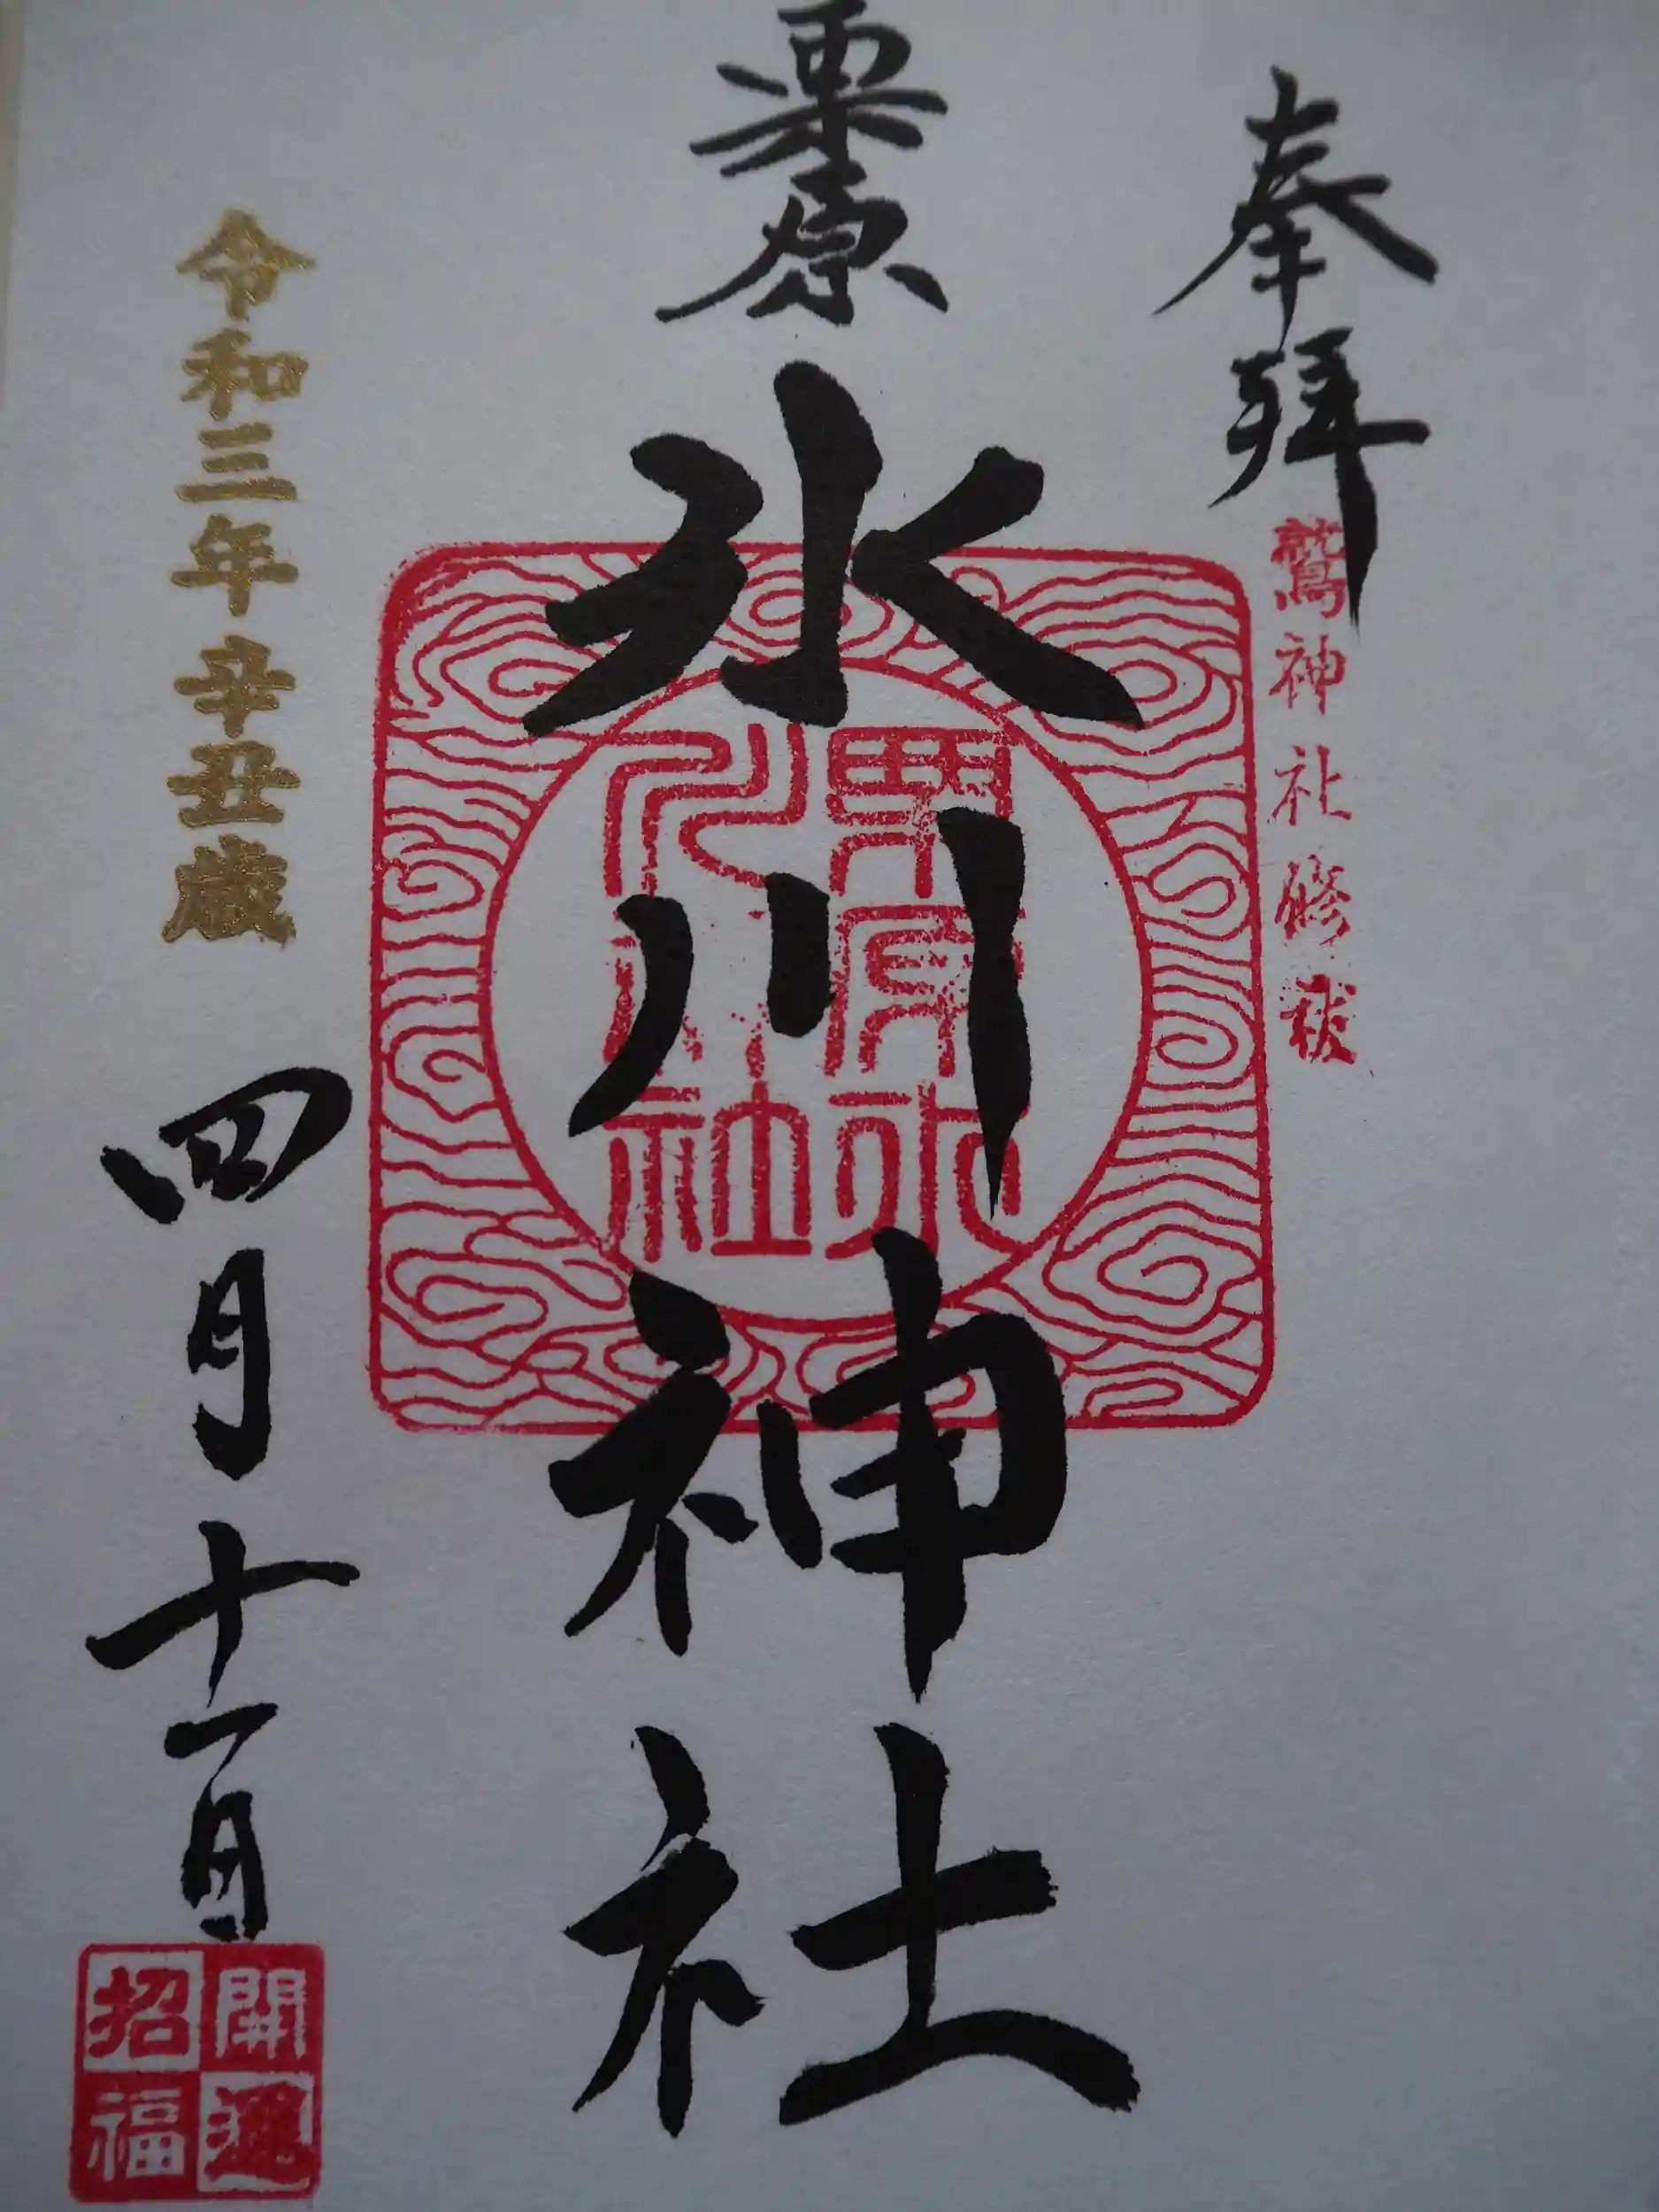 奉拝
鷲神社修祓
栗原
氷川神社
栗原氷
川神社
令和三年辛丑歳
四月十一日
開運
招福